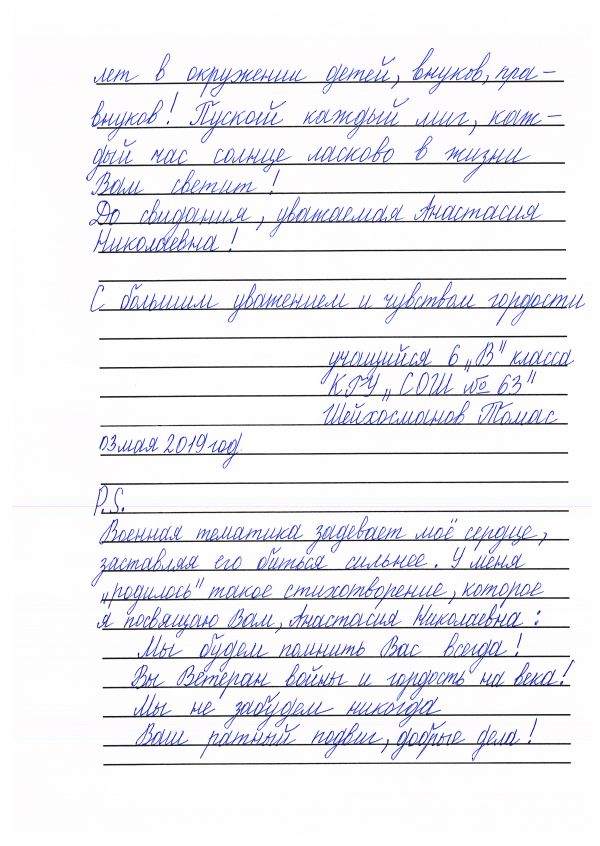 лет в окружении детей, внуков, пра-
внуков! Пускай каждый миг, каж-
дый час солнце ласково в жизни
Вам светит!
До свидания, уважаемая Анастасия
Николаевна!
С большим уважением и чувством гордости
учащийся 6 „В" класса
КГУ „СОШ № 63"
Шейхосманов Томас
03 мая 2019 год
P.S.
Военная тематика задевает моё сердце,
заставляя его биться сильнее. У меня
„родилось" такое стихотворение, которое
я посвящаю Вам, Анастасия Николаевна:
Мы будем помнить Вас всегда!
Вы Ветеран войны и гордость на века!
Мы не забудем никогда
Ваш ратный подвиг, добрые дела!